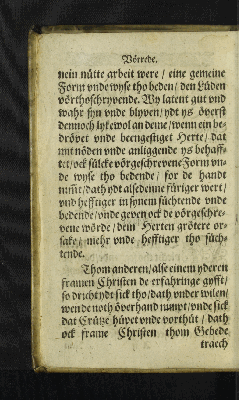 Vörrede.
nein nütte arbeit were / eine gemeine
Form vnde wyse tho beden / den Lüden
vörthoschryvende. Wy latent gut vnd
wahr syn vnde blyven / ydt ys överst
dennoch lykewol an deme / wenn ein be-
drövet vnde beengestiget Herte / dat
mit nöden vnde anliggende ys behaff-
tet / ock sülcke vörgeschrevene Form vn-
de wyse tho bedende / för de handt
nimt / dath ydt alsedenne füriger wert /
vnd hefftiger in synem süchtende vnde
bedende / vnde geven ock de vörgeschre-
vene wörde / dem Herten grötere or-
sake / mehr vnde hefftiger tho süch-
tende.
Thom anderen / alse einem yderen
framen Christen de erfahringe gyfft /
so drichtydt sick tho / dath vnder wilen /
wende noth överhand nimpt / vnde sick
dat Crütze hüpet vnde vorthüt / dath
ock frame Christen thom Gebede
traech